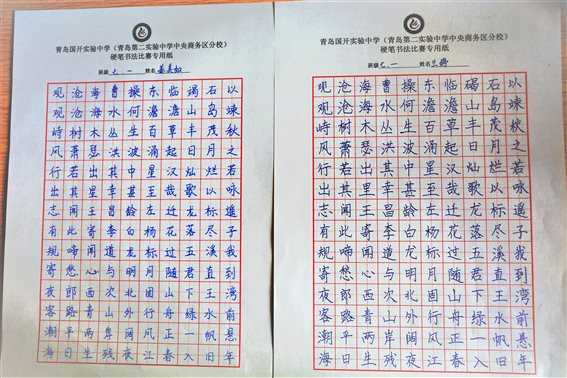 青岛国开实验中学（青岛第二实验中学中央商务区分校）
硬笔书法比赛专用纸
班级 七.一 姓名
观沧海曹操东临碣石以
观沧海水何澹澹山岛竦
峙树木丛生百草丰茂秋
风萧瑟洪波涌起日月之
行若出其中星汉灿烂若
出其里幸甚至哉歌以咏
志闻王昌龄左迁龙标遥
有此寄李白杨花落尽子
规啼闻道龙标过五溪我
寄愁心与明月随君直到
夜郎西次北固山下王湾
客路青山外行舟绿水前
潮平两岸阔风正一帆悬
海日生残夜江春入旧年
青岛国开实验中学（青岛第二实验中学中央商务区分校）
硬笔书法比赛专用纸
班级 七.一 姓名
观沧海曹操东临碣石以
观沧海水何澹澹山岛竦
峙树木丛生百草丰茂秋
风萧瑟洪波涌起日月之
行若出其中星汉灿烂若
出其里幸甚至哉歌以咏
志闻王昌龄左迁龙标遥
有此寄李白杨花落尽子
规啼闻道龙标过五溪我
寄愁心与明月随君直到
夜郎西次北固山下王湾
客路青山外行舟绿水前
潮平两岸阔风正一帆悬
海日生残夜江春入旧年